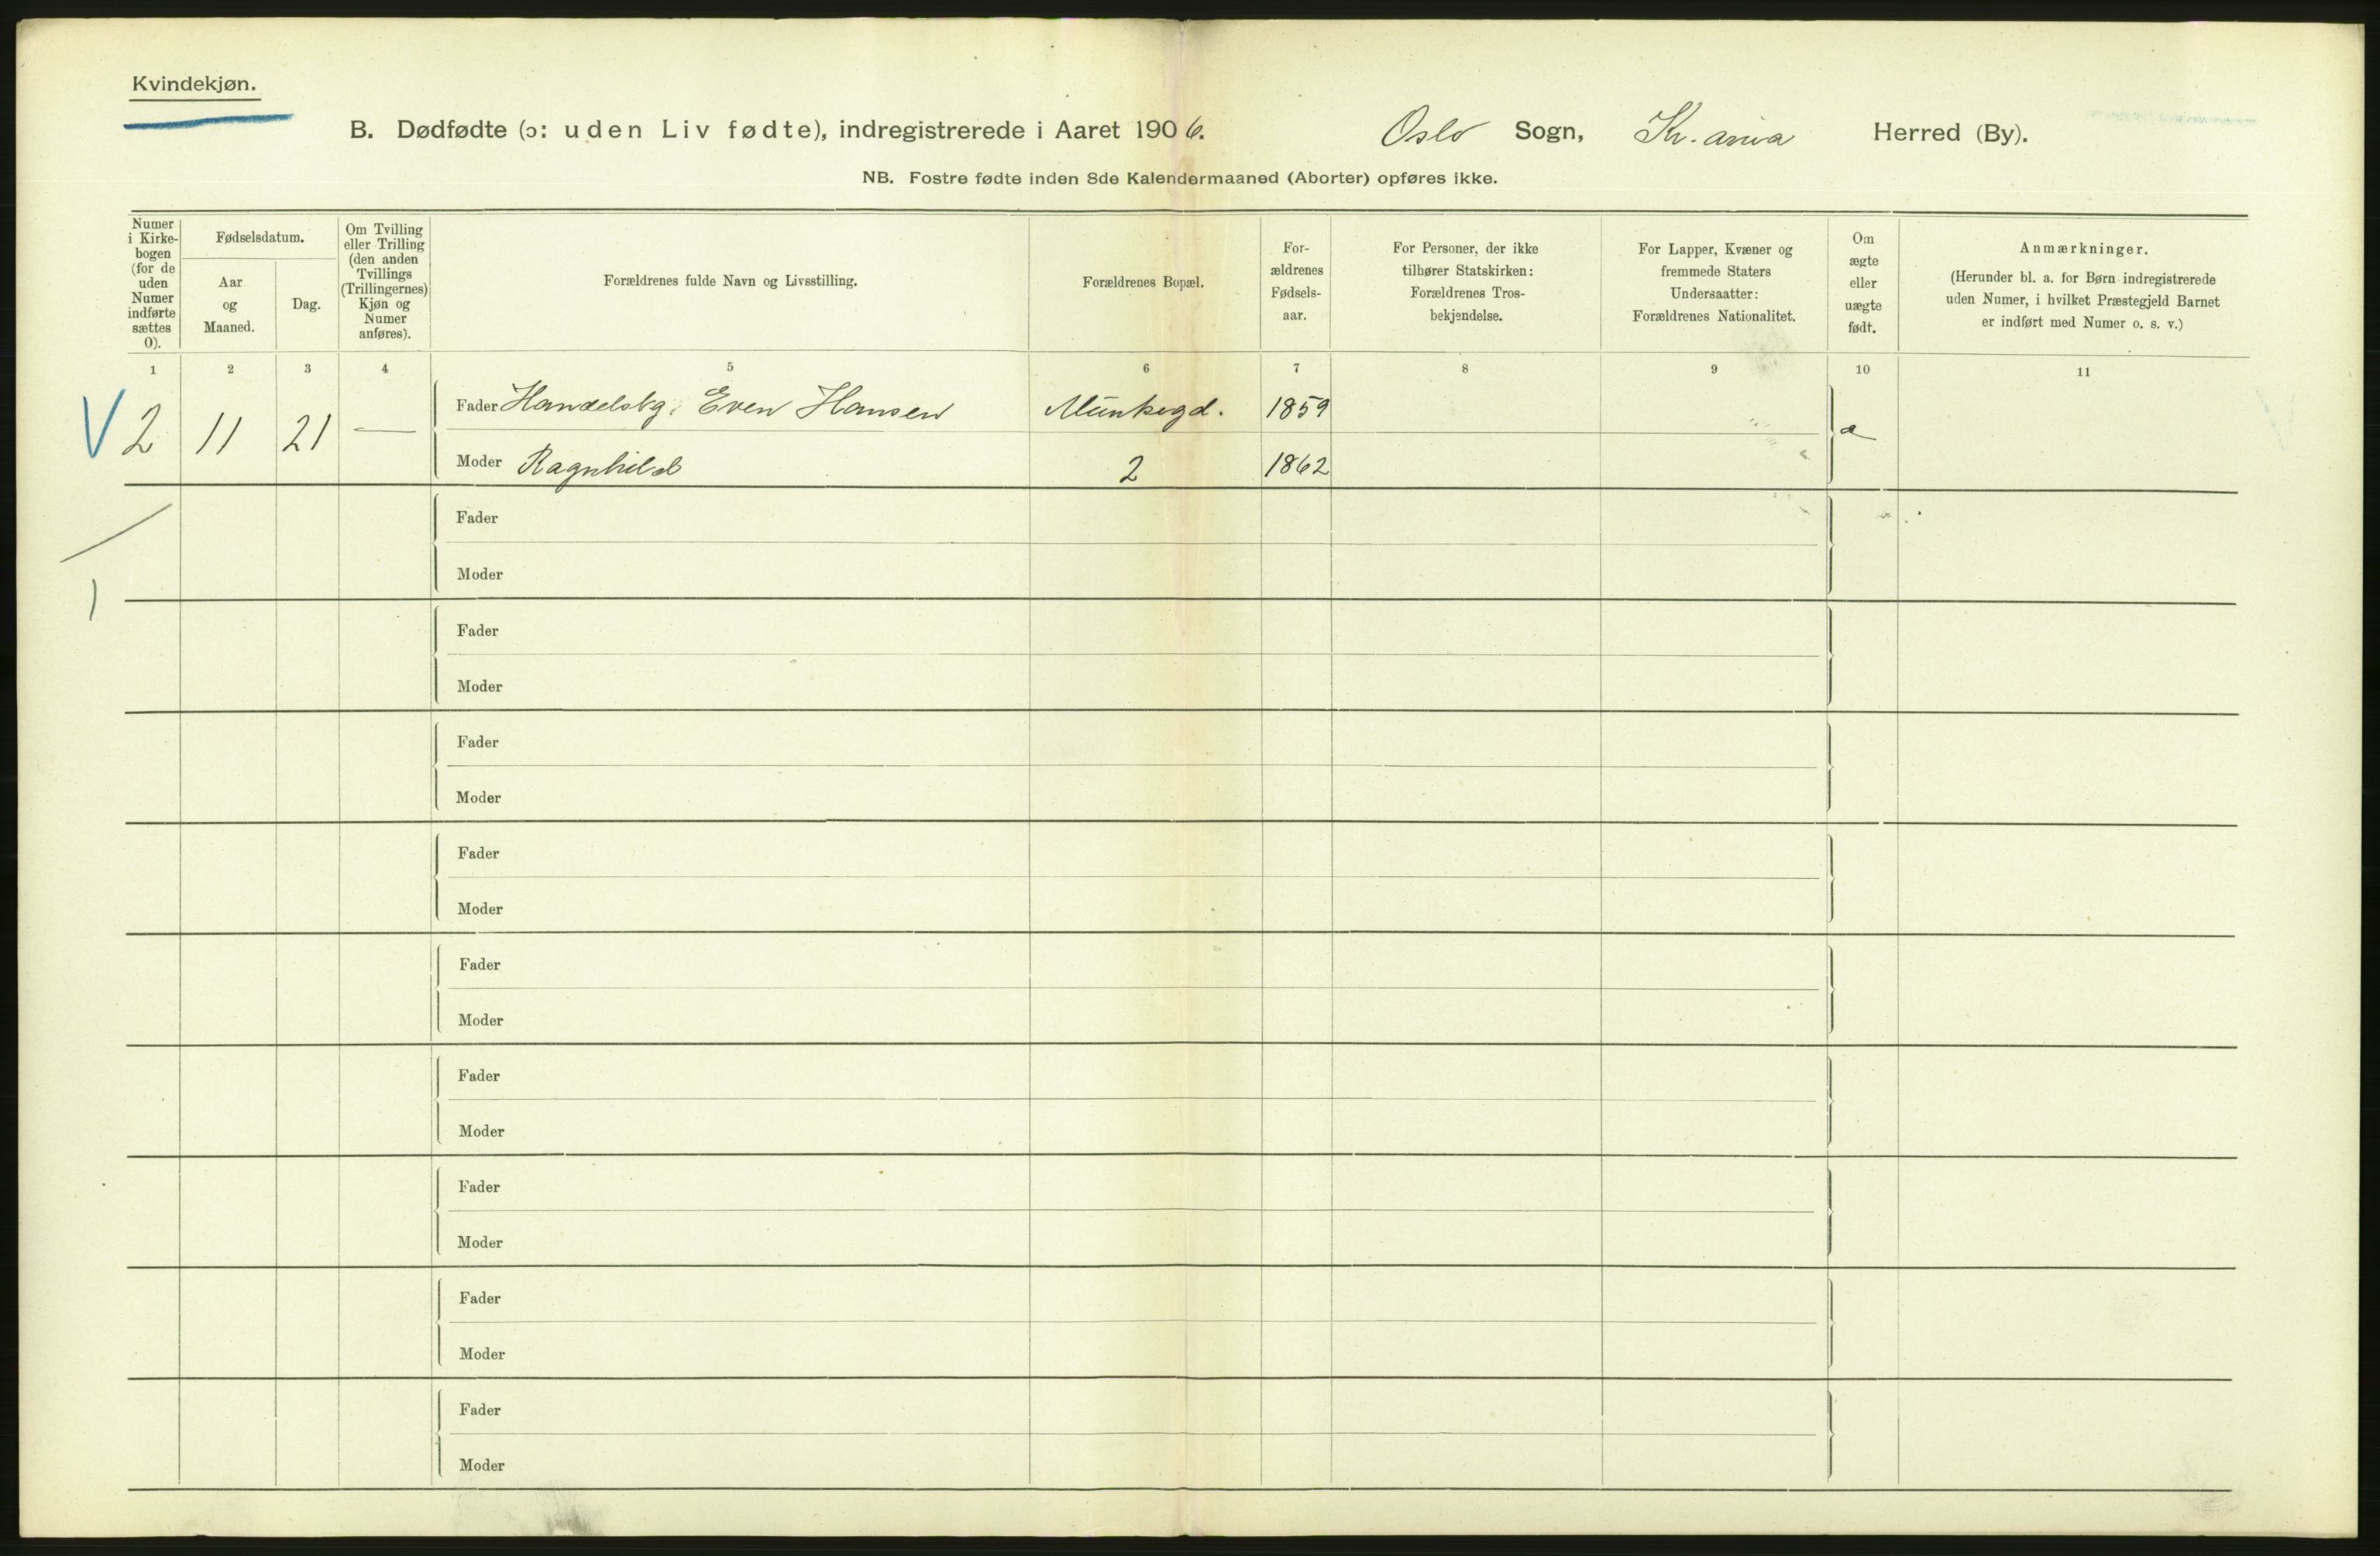 Kvindekjøn.
B. Dødfødte (ɔ: uden Liv fødte), indregistrerede i Aaret 1906. Oslo Sogn, Kr.ania Herred (By).
NB. Fostre fødte inden 8de Kalendermaaned (Aborter) opføres ikke.
Numer i Kirke-bogen (for de uden Numer indførte sættes 0).
Fødselsdatum.
Aar og Maaned.
Dag.
Om Tvilling eller Trilling (den anden Tvillings (Trillingernes) Kjøn og Numer anføres).
Forældrenes fulde Navn og Livsstilling.
Forældrenes Bopæl.
For-ældrenes Fødsels-aar.
For Personer, der ikke tilhører Statskirken: Forældrenes Tros-bekjendelse.
For Lapper, Kvæner og fremmede Staters Undersaatter: Forældrenes Nationalitet.
Om ægte eller uægte født.
Anmærkninger.
(Herunder bl. a. for Børn indregistrerede uden Numer, i hvilket Præstegjeld Barnet er indført med Numer o. s. v.)
1 2 3 4 5 6 7 8 9 10 11
V 2 11 21 — Fader Handelsbg. Even Hansen Munkegd. 1859 æ
Moder Ragnhild 2 1862
Fader
Moder
1
Fader
Moder
Fader
Moder
Fader
Moder
Fader
Moder
Fader
Moder
Fader
Moder
Fader
Moder
Fader
Moder